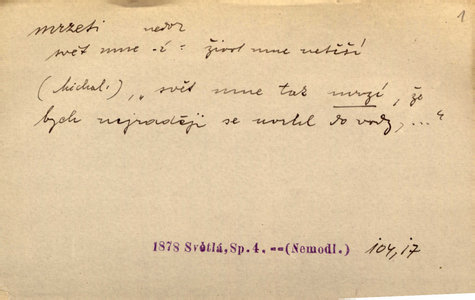 1
mrzeti nedok
svět mne -í = život mne netěší
(Michal.) „svět mne tak mrzí, že
bych nejraději se vrhl do vody, ..."
1878 Světlá, Sp. 4. -- (Nemodl.) 104,17